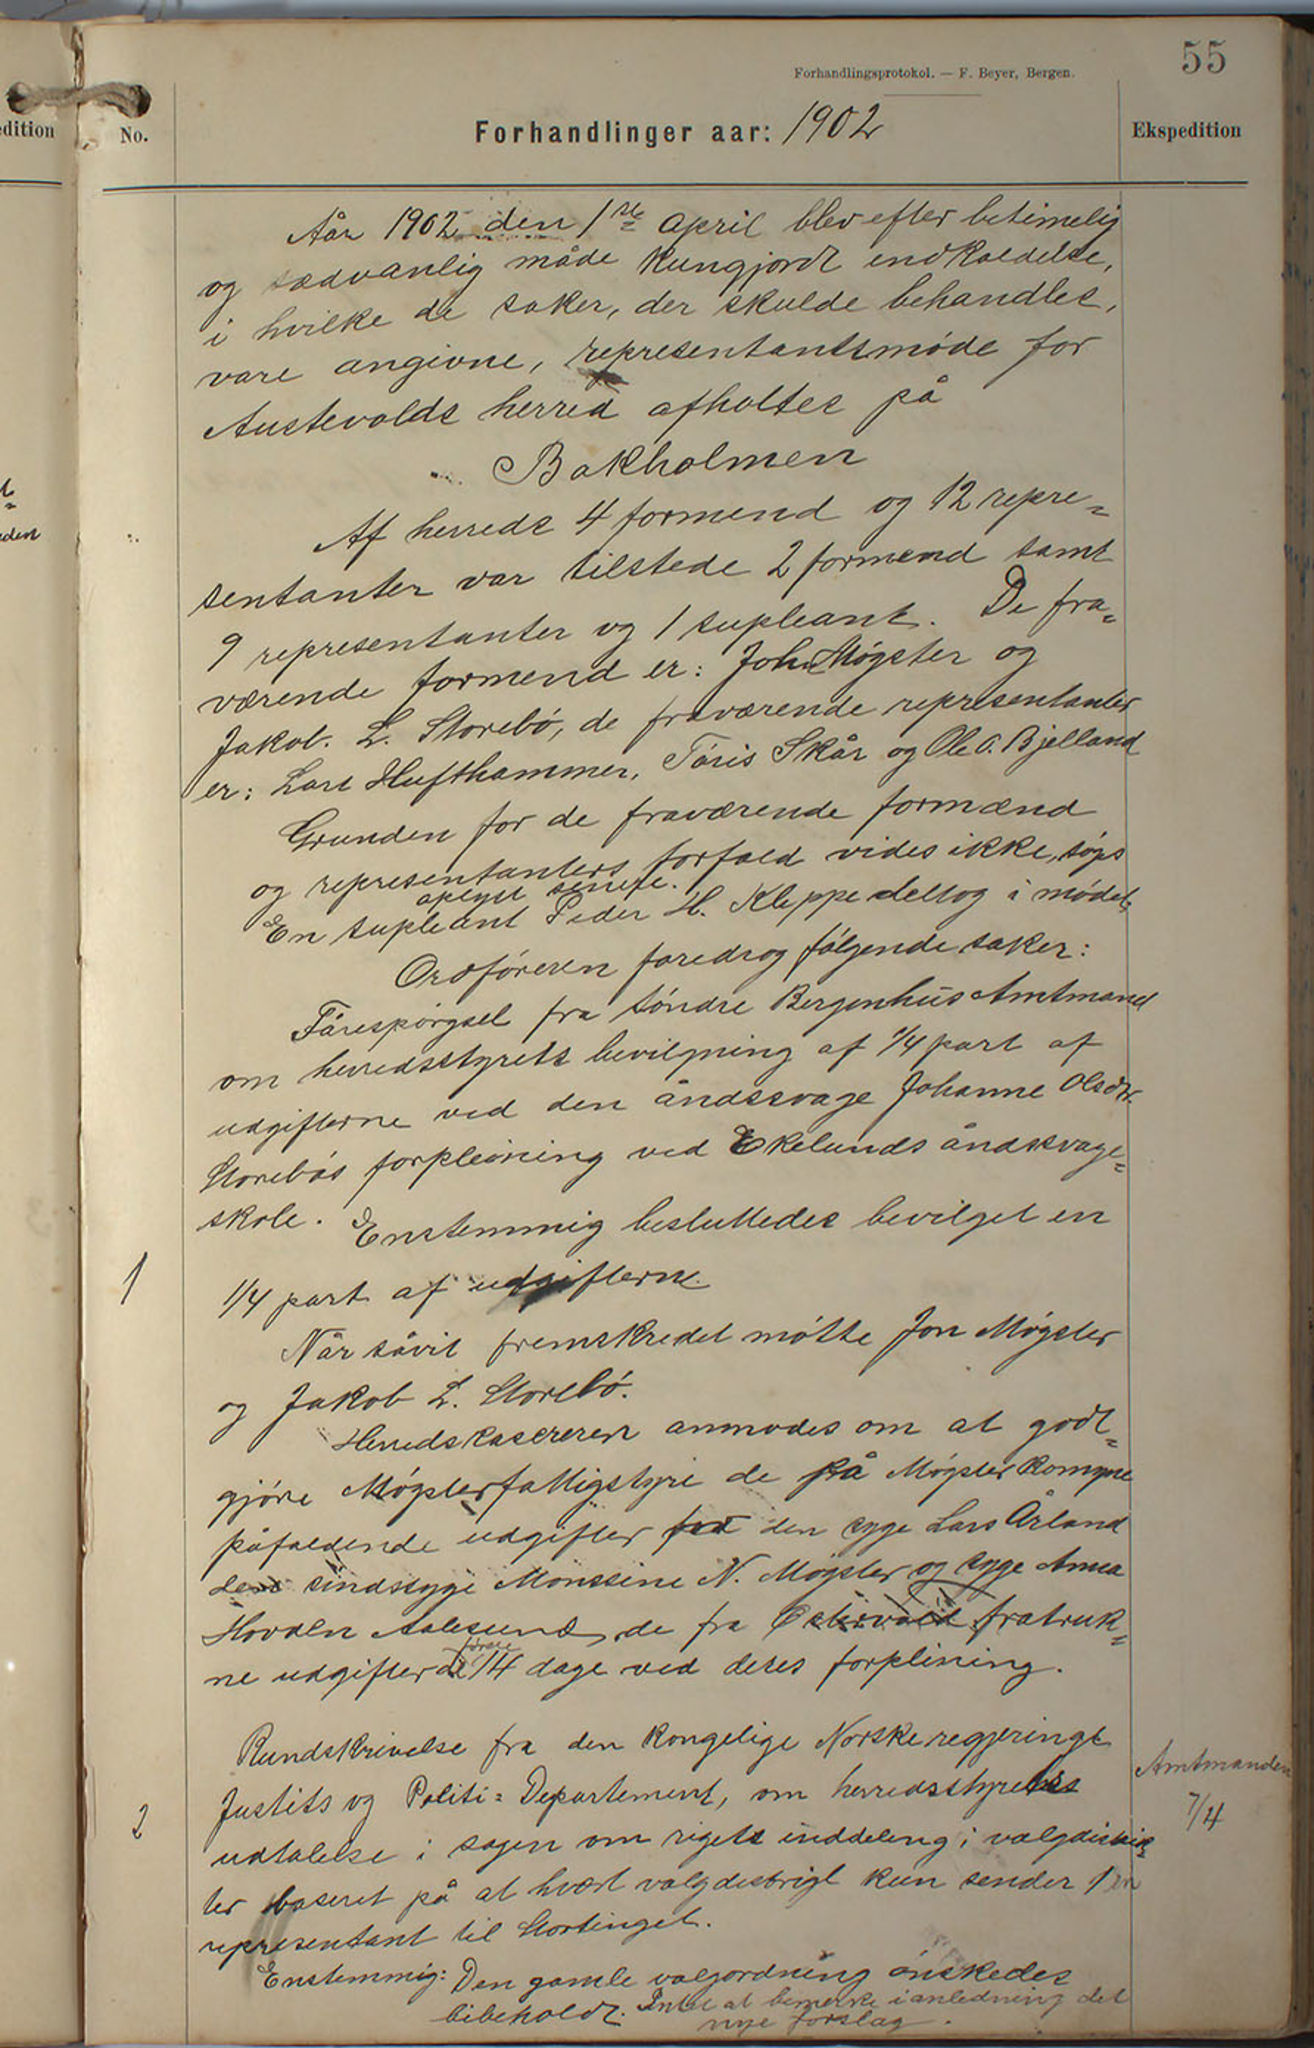 55
Forhandlingsprotokol. — F. Beyer, Bergen.
edition
No.
Forhandlinger aar: 1902
Ekspedition
Aår 1902 den 1ste april blev efter betimelig
og sædvanlig måde kungjort indkaldelse,
i hvilke de saker, der skulde behandles,
vare angivne, representantsmøde for
Austevolds herred afholtes på
Bakholmen
Af herreds 4 formend og 12 repre=
sentanter var tilstede 2 formend samt
9 representanter og 1 supleant. De fra=
værende formend er: Joh. Møgster og
Jakob. L. Storebø, de fraværende representanter
er: Lars Hufthammer, Tøris Skår og Ole O. Bjelland
Grunden for de fraværende formænd
og representanters forfald vides ikke, søges
oplyst senere.
En supleant Peder H. Kleppe deltog i mødet,
Ordføreren foredrog følgende saker:
Førespørgsel fra søndre Bergenhus Amtmand
om herredsstyrets bevilgning af 1/4 part af
udgifterne ved den åndssvage Johanne Olsdtr.
Storebøs forpleining ved Ekelunds åndssvage=
skole. Enstemmig besluttedes bevilget en
1
1/4 part af udgifterne.
Når såvit fremskredet møtte Jon Møgster
og Jakob L. Storebø.
Herredskasereren anmodes om at godt=
gjøre Møgster fattigstyre de på Møgster komune
påfaldende udgifter for den syge Lars Årland
den sindssyge Monssine N. Møgster og syge Anna
Hovden Aalesund, de fra Østervold fratruk=
ne udgifter de første 14 dage ved deres forplining.
Rundskrivelse fra den kongelige Norske regjerings
Amtmanden
7/4
Justits og Politi= Departement, om herredsstyrets
2
udtalelse i sagen om rigets inddeling i valgdistrik=
ter baseret på at hvært valgdistrigt kun sender 1 en
representant til Stortinget.
Enstemmig: Den gamle valgordning ønskedes
bibeholdt. Intet at bemerke i anledning det
nye forslag.